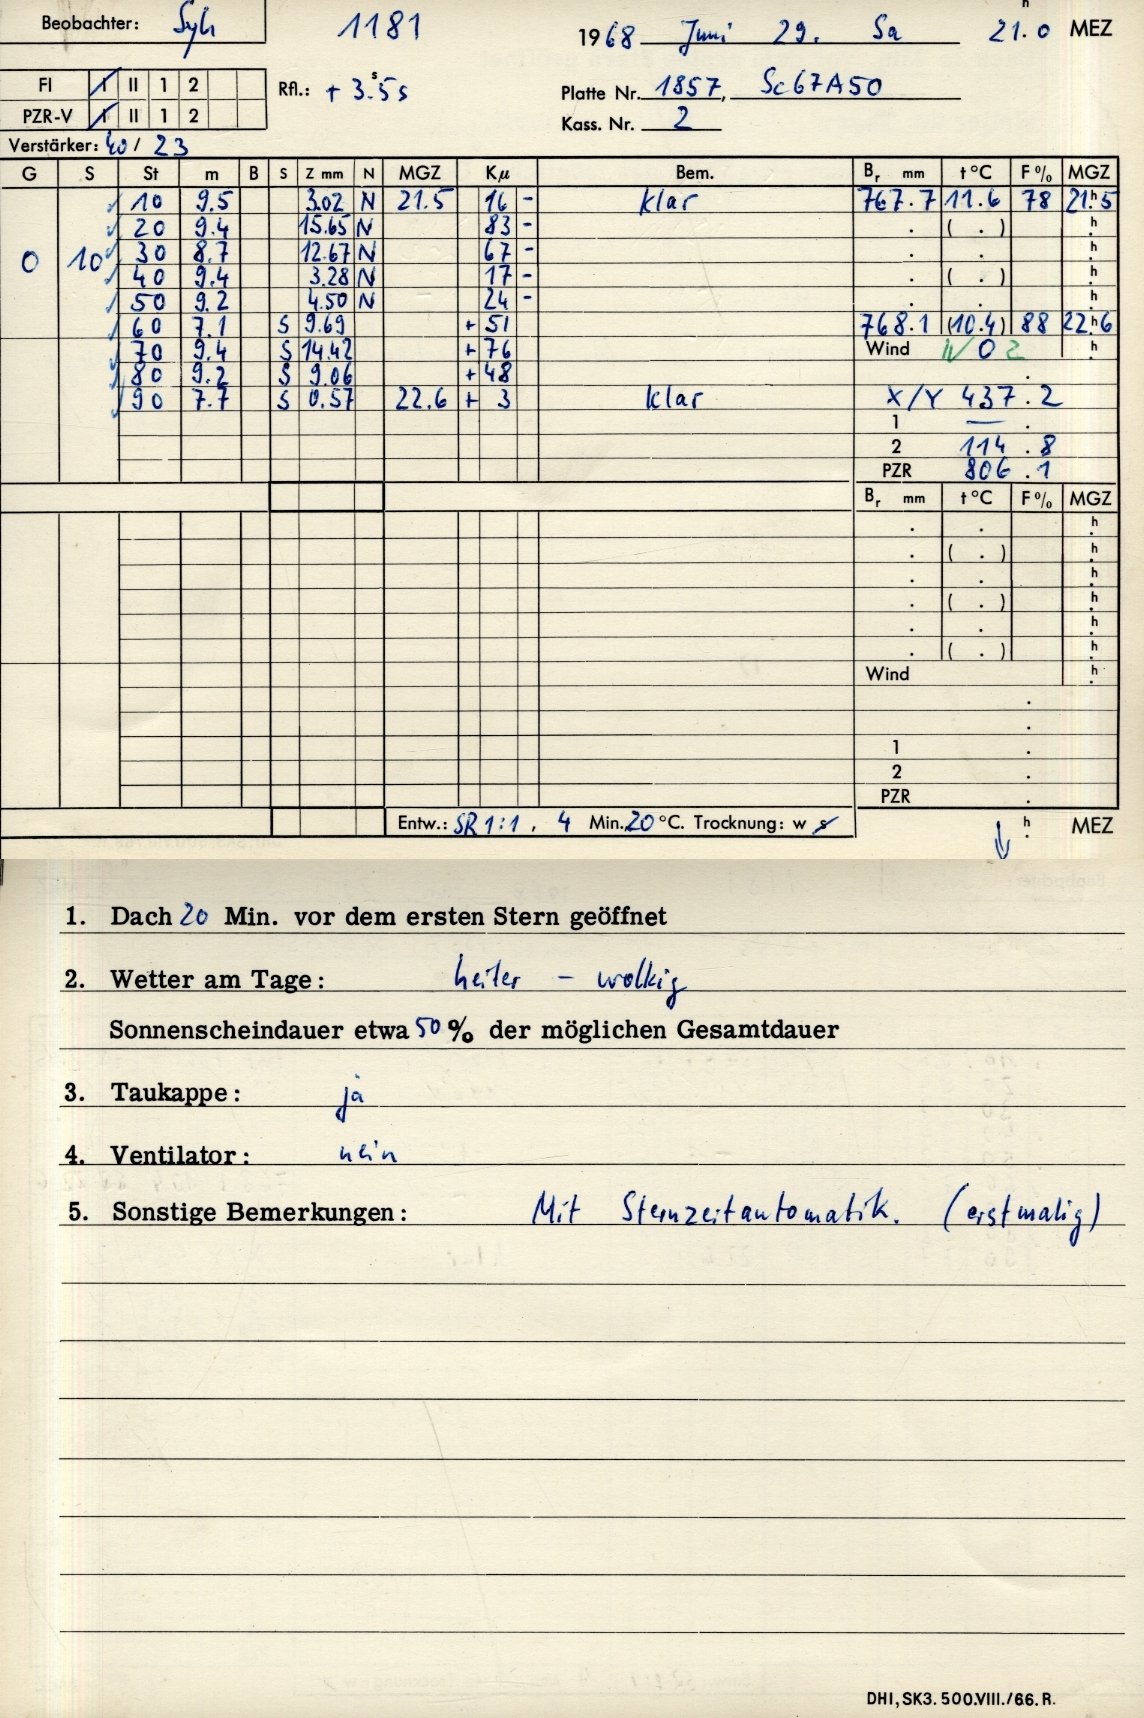 Beobachter: Syh 1181 1968 Juni 29. Sa 21.0 h MEZ
FI I II 1 2 Rfl.: + 3.5 s Platte Nr. 1857, Sc67A50
PZR-V I II 1 2 Kass. Nr. 2
Verstärker: 40 / 23
G S St m B S Z mm N MGZ Kμ Bem. Br mm t °C F % MGZ
10 9.5 3.02 N 21.5 16 - klar 767.7 11.6 78 21.5 h
20 9.4 15.65 N 83 - . ( . ) h
0 10 30 8.7 12.67 N 67 - . . h
40 9.4 3.28 N 17 - . ( . ) h
50 9.2 4.50 N 24 - . . h
60 7.1 S 9.69 + 51 768.1 (10.4) 88 22.6 h
70 9.4 S 14.42 + 76 Wind W 0 2 h
80 9.2 S 9.06 + 48 .
90 7.7 S 0.57 22.6 + 3 klar X/Y 437.2
1 — .
2 114.8
PZR 806.1
Br mm t °C F % MGZ
. . h
. ( . ) h
. . h
. ( . ) h
. . h
. ( . ) h
Wind h
.
.
1 .
2 .
PZR .
Entw.: SR 1:1, 4 Min. 20 °C. Trocknung: w s ↓ h MEZ
1. Dach 20 Min. vor dem ersten Stern geöffnet
2. Wetter am Tage: heiter - wolkig
Sonnenscheindauer etwa 50 % der möglichen Gesamtdauer
3. Taukappe: ja
4. Ventilator: nein
5. Sonstige Bemerkungen: Mit Sternzeitautomatik. (erstmalig)
DHI, SK3. 500.VIII./66. R.